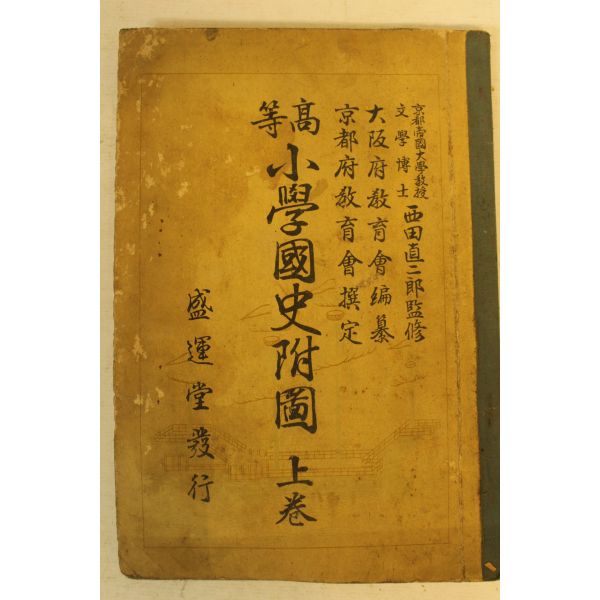 京都帝國大學教授
文學博士
西田直二郎監修
大阪府教育會編纂
京都府教育會撰定
高等
小學國史附圖 上卷
盛運堂發行